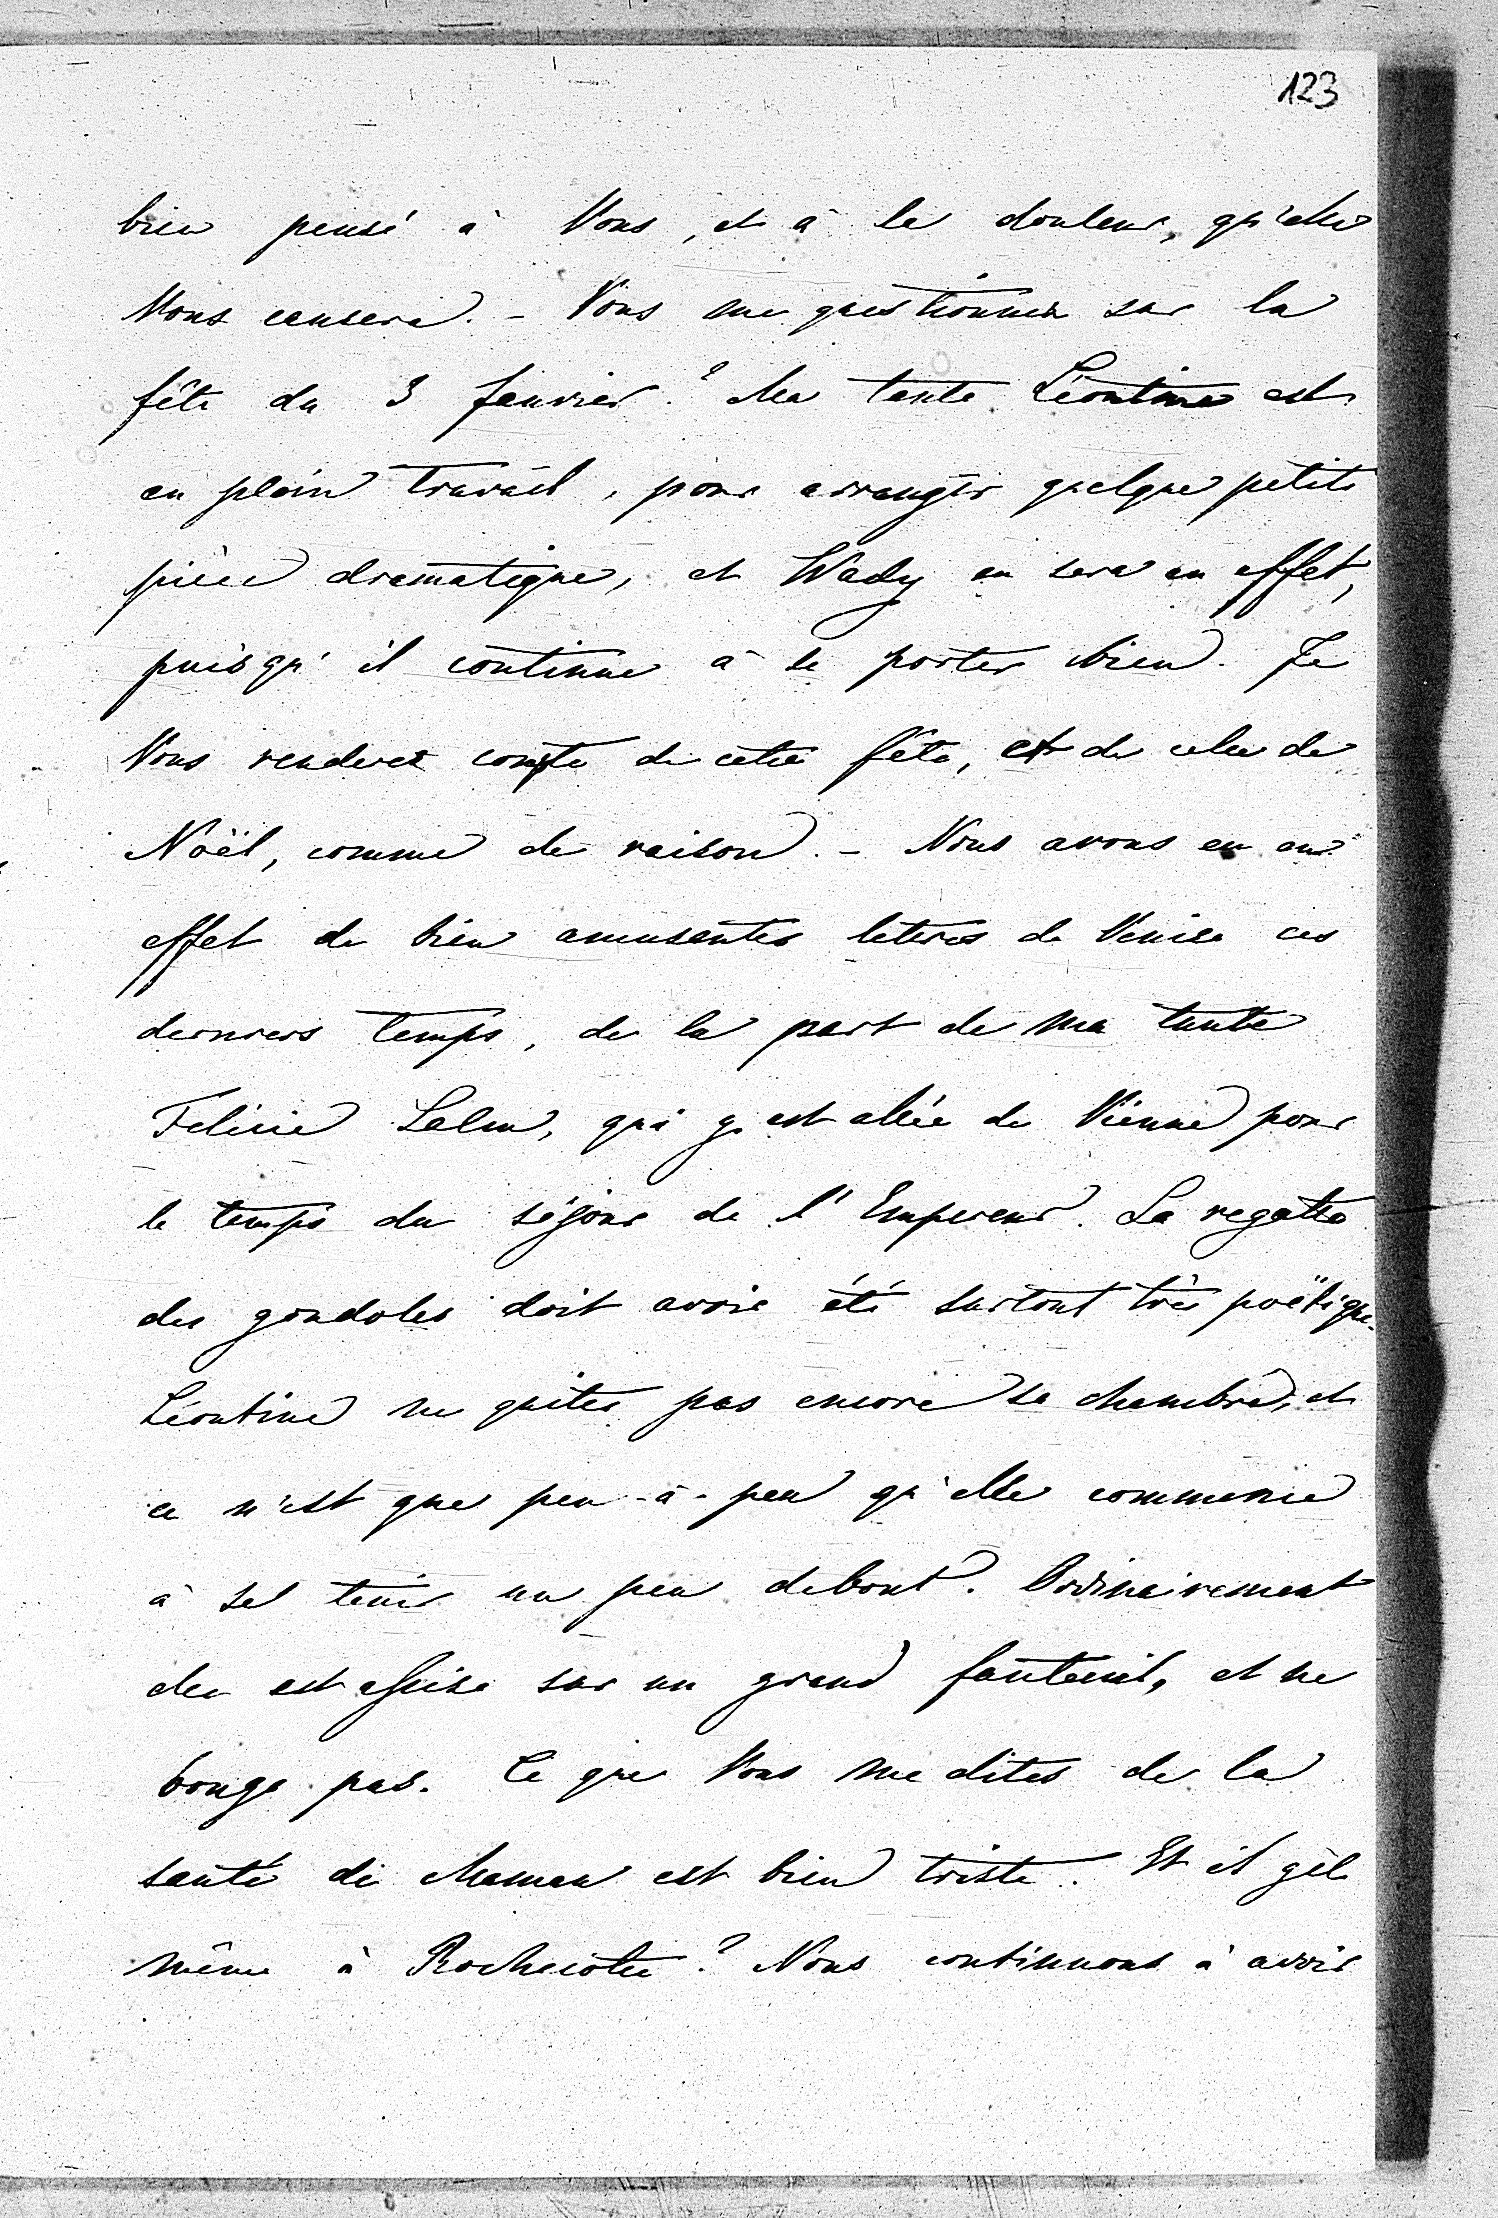 123
bien pensé à Vous, et à la douleur, qu'elle
Vous causera. - Vous me questionnez sur la
fête du 3 Janvier? Ma tante Léontine est
en plein travail, pour arranger quelque petite
pièce dramatique, et Wady en sera en effet,
puisqu'il continue à se porter bien. Je
Vous renderet compte de cette fête, et de celle de
Noël, comme de raison. - Nous avons eu en
effet de bien amusantes lettres de Venise ces
derniers temps, de la part de ma tante
Felicie, qui y est allée de Vienne pour
le temps du séjour de l'Empereur. La regatta
des gondoles doit avoir été surtout très poëtique.
Léontine ne quitte pas encore sa chambre, et
ce n'est que peu-à-peu qu'elle commence
à se tenir un peu debout. Ordinairement
elle est assise sur un grand fauteuil, et ne
bouge pas. Ce que Vous me dites de la
santé de Maman est bien triste. Et il gèle
même à Rochecotte? Nous continuons à avoir